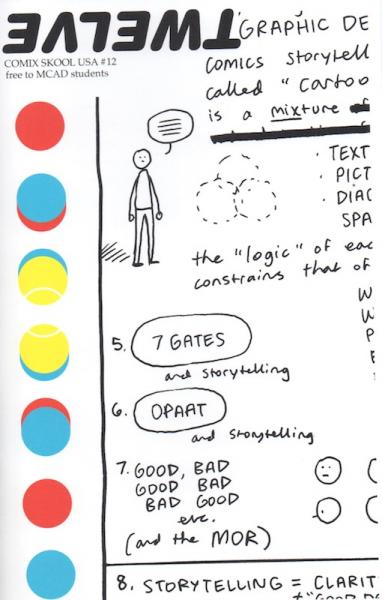 TWELVE
COMIX SKOOL USA #12
free to MCAD students
GRAPHIC DE
COMICS STORYTELL
called "CARTOO
is a mixture of
· TEXT
· PICT
· DIAG
SPA
the "logic" of eac
constrains that of
W
W
P
5. 7 GATES
and storytelling
6. OPAAT
and storytelling
7. GOOD, BAD
GOOD BAD
BAD GOOD
etc.
(and the MOR)
8. STORYTELLING = CLARIT
≠ "GOOD D